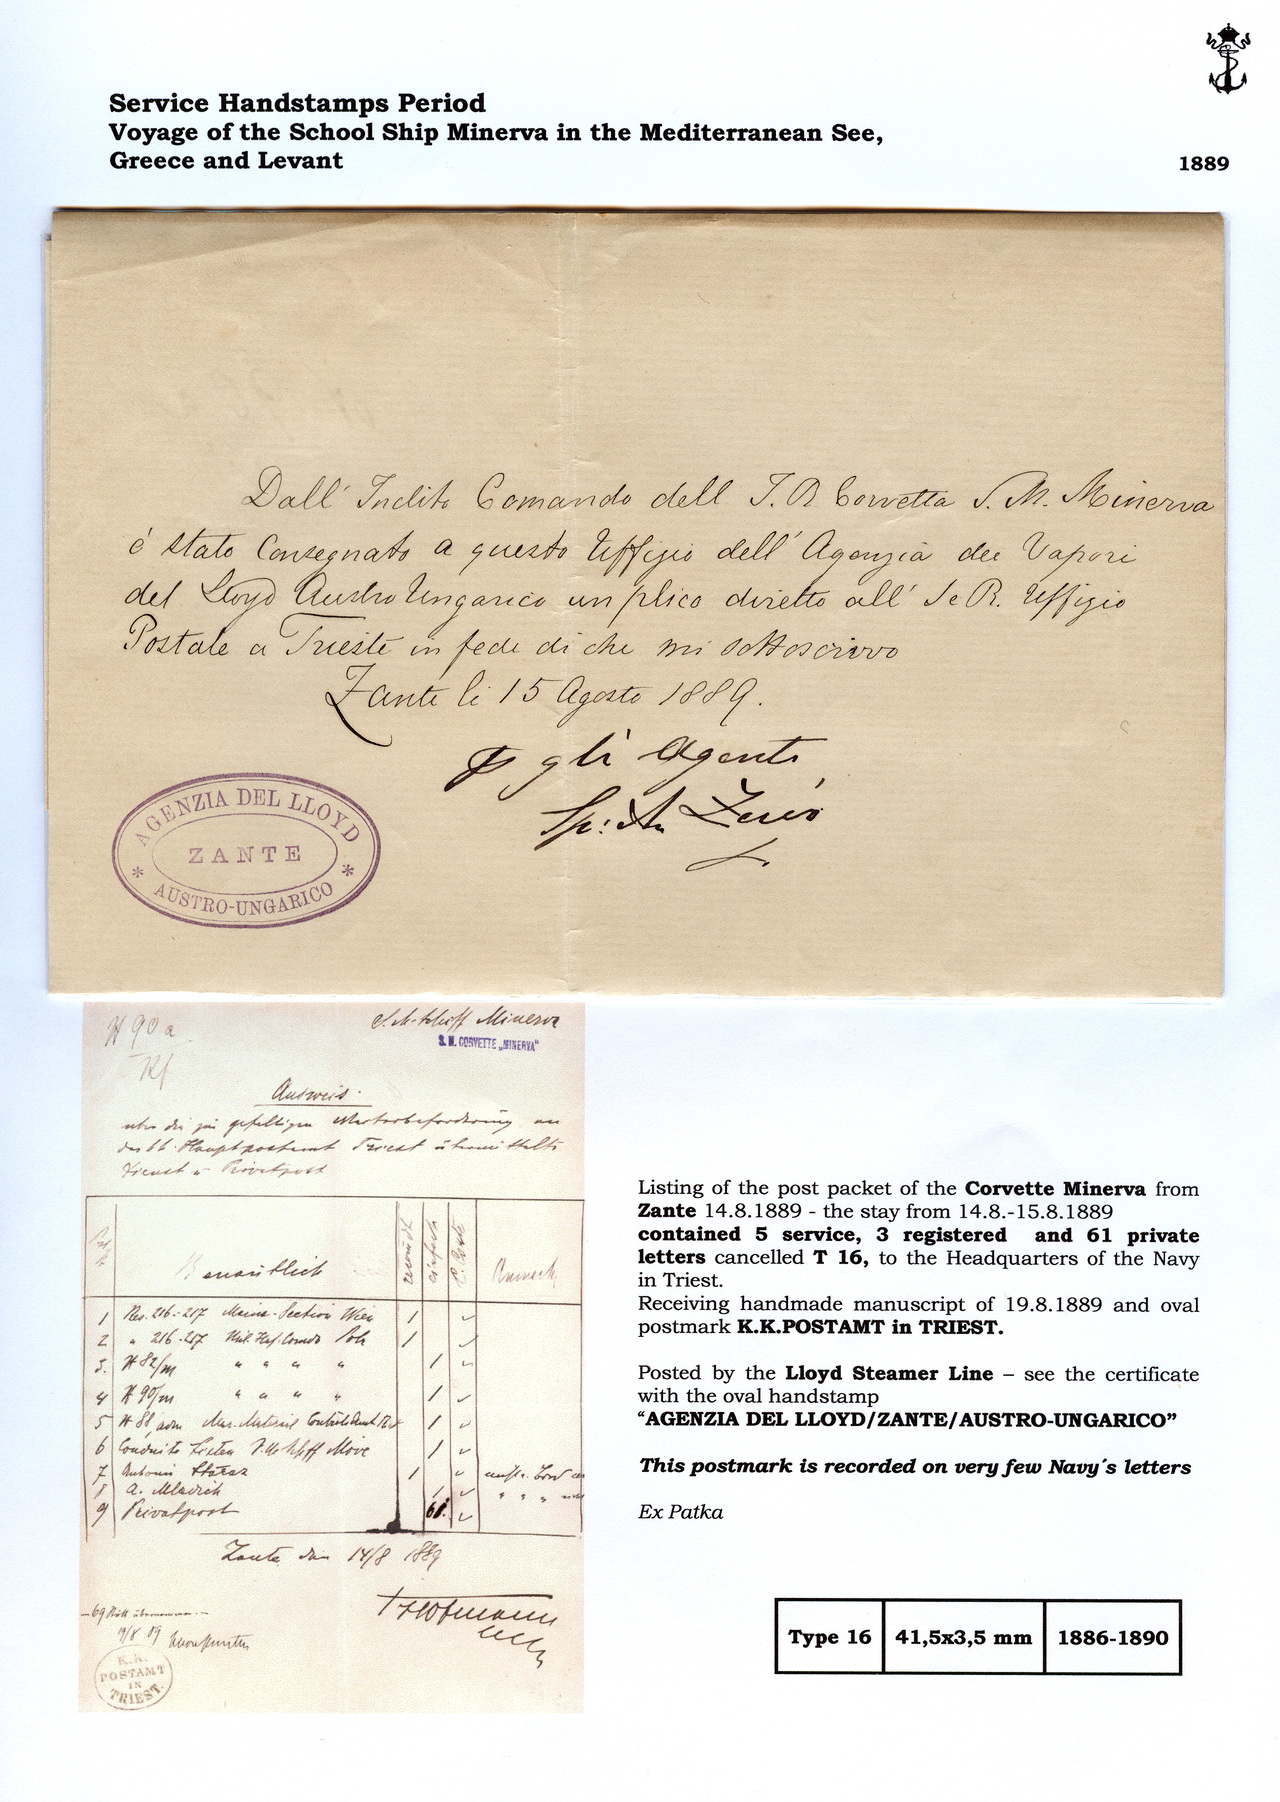 Service Handstamps Period
Voyage of the School Ship Minerva in the Mediterranean See,
Greece and Levant
1889
Dall' Inclito Comando dell I. R. Corvetta S. M. Minerva
è stato Consegnato a questo Uffizio dell' Agenzia dei Vapori
del Lloyd Austro Ungarico un plico diretto all' I e R. Uffizio
Postale a Trieste in fede di che mi sottoscrivo
Zante li 15 Agosto 1889.
gli Agenti
AGENZIA DEL LLOYD
ZANTE
* *
AUSTRO-UNGARICO
N 90 a
S. M. Schiff Minerva
S. M. CORVETTE „MINERVA"
Ausweis
über die zur gefälligen Weiterbeförderung an
das kk. Hauptpostamt Triest übermittelte
Dienst u Privatpost
einfach
Anmerk
1 Res. 216-217 Marine-Section Wien 1
2 " 216-217 Pola 1
3. N 82/m " " " " 1
4 N 90/m " " " " 1
5 N 88 1
6 Conduite Listen Möve 1
7 Antonio 1
8 A. Mladich 1
9 Privatpost 61.
Zante den 14/8 1889
69 Stück übernommen
19/8 89
K. K.
POSTAMT
IN
TRIEST.
Listing of the post packet of the Corvette Minerva from
Zante 14.8.1889 - the stay from 14.8.-15.8.1889
contained 5 service, 3 registered and 61 private
letters cancelled T 16, to the Headquarters of the Navy
in Triest.
Receiving handmade manuscript of 19.8.1889 and oval
postmark K.K.POSTAMT in TRIEST.
Posted by the Lloyd Steamer Line – see the certificate
with the oval handstamp
“AGENZIA DEL LLOYD/ZANTE/AUSTRO-UNGARICO”
This postmark is recorded on very few Navy´s letters
Ex Patka
Type 16 41,5x3,5 mm 1886-1890